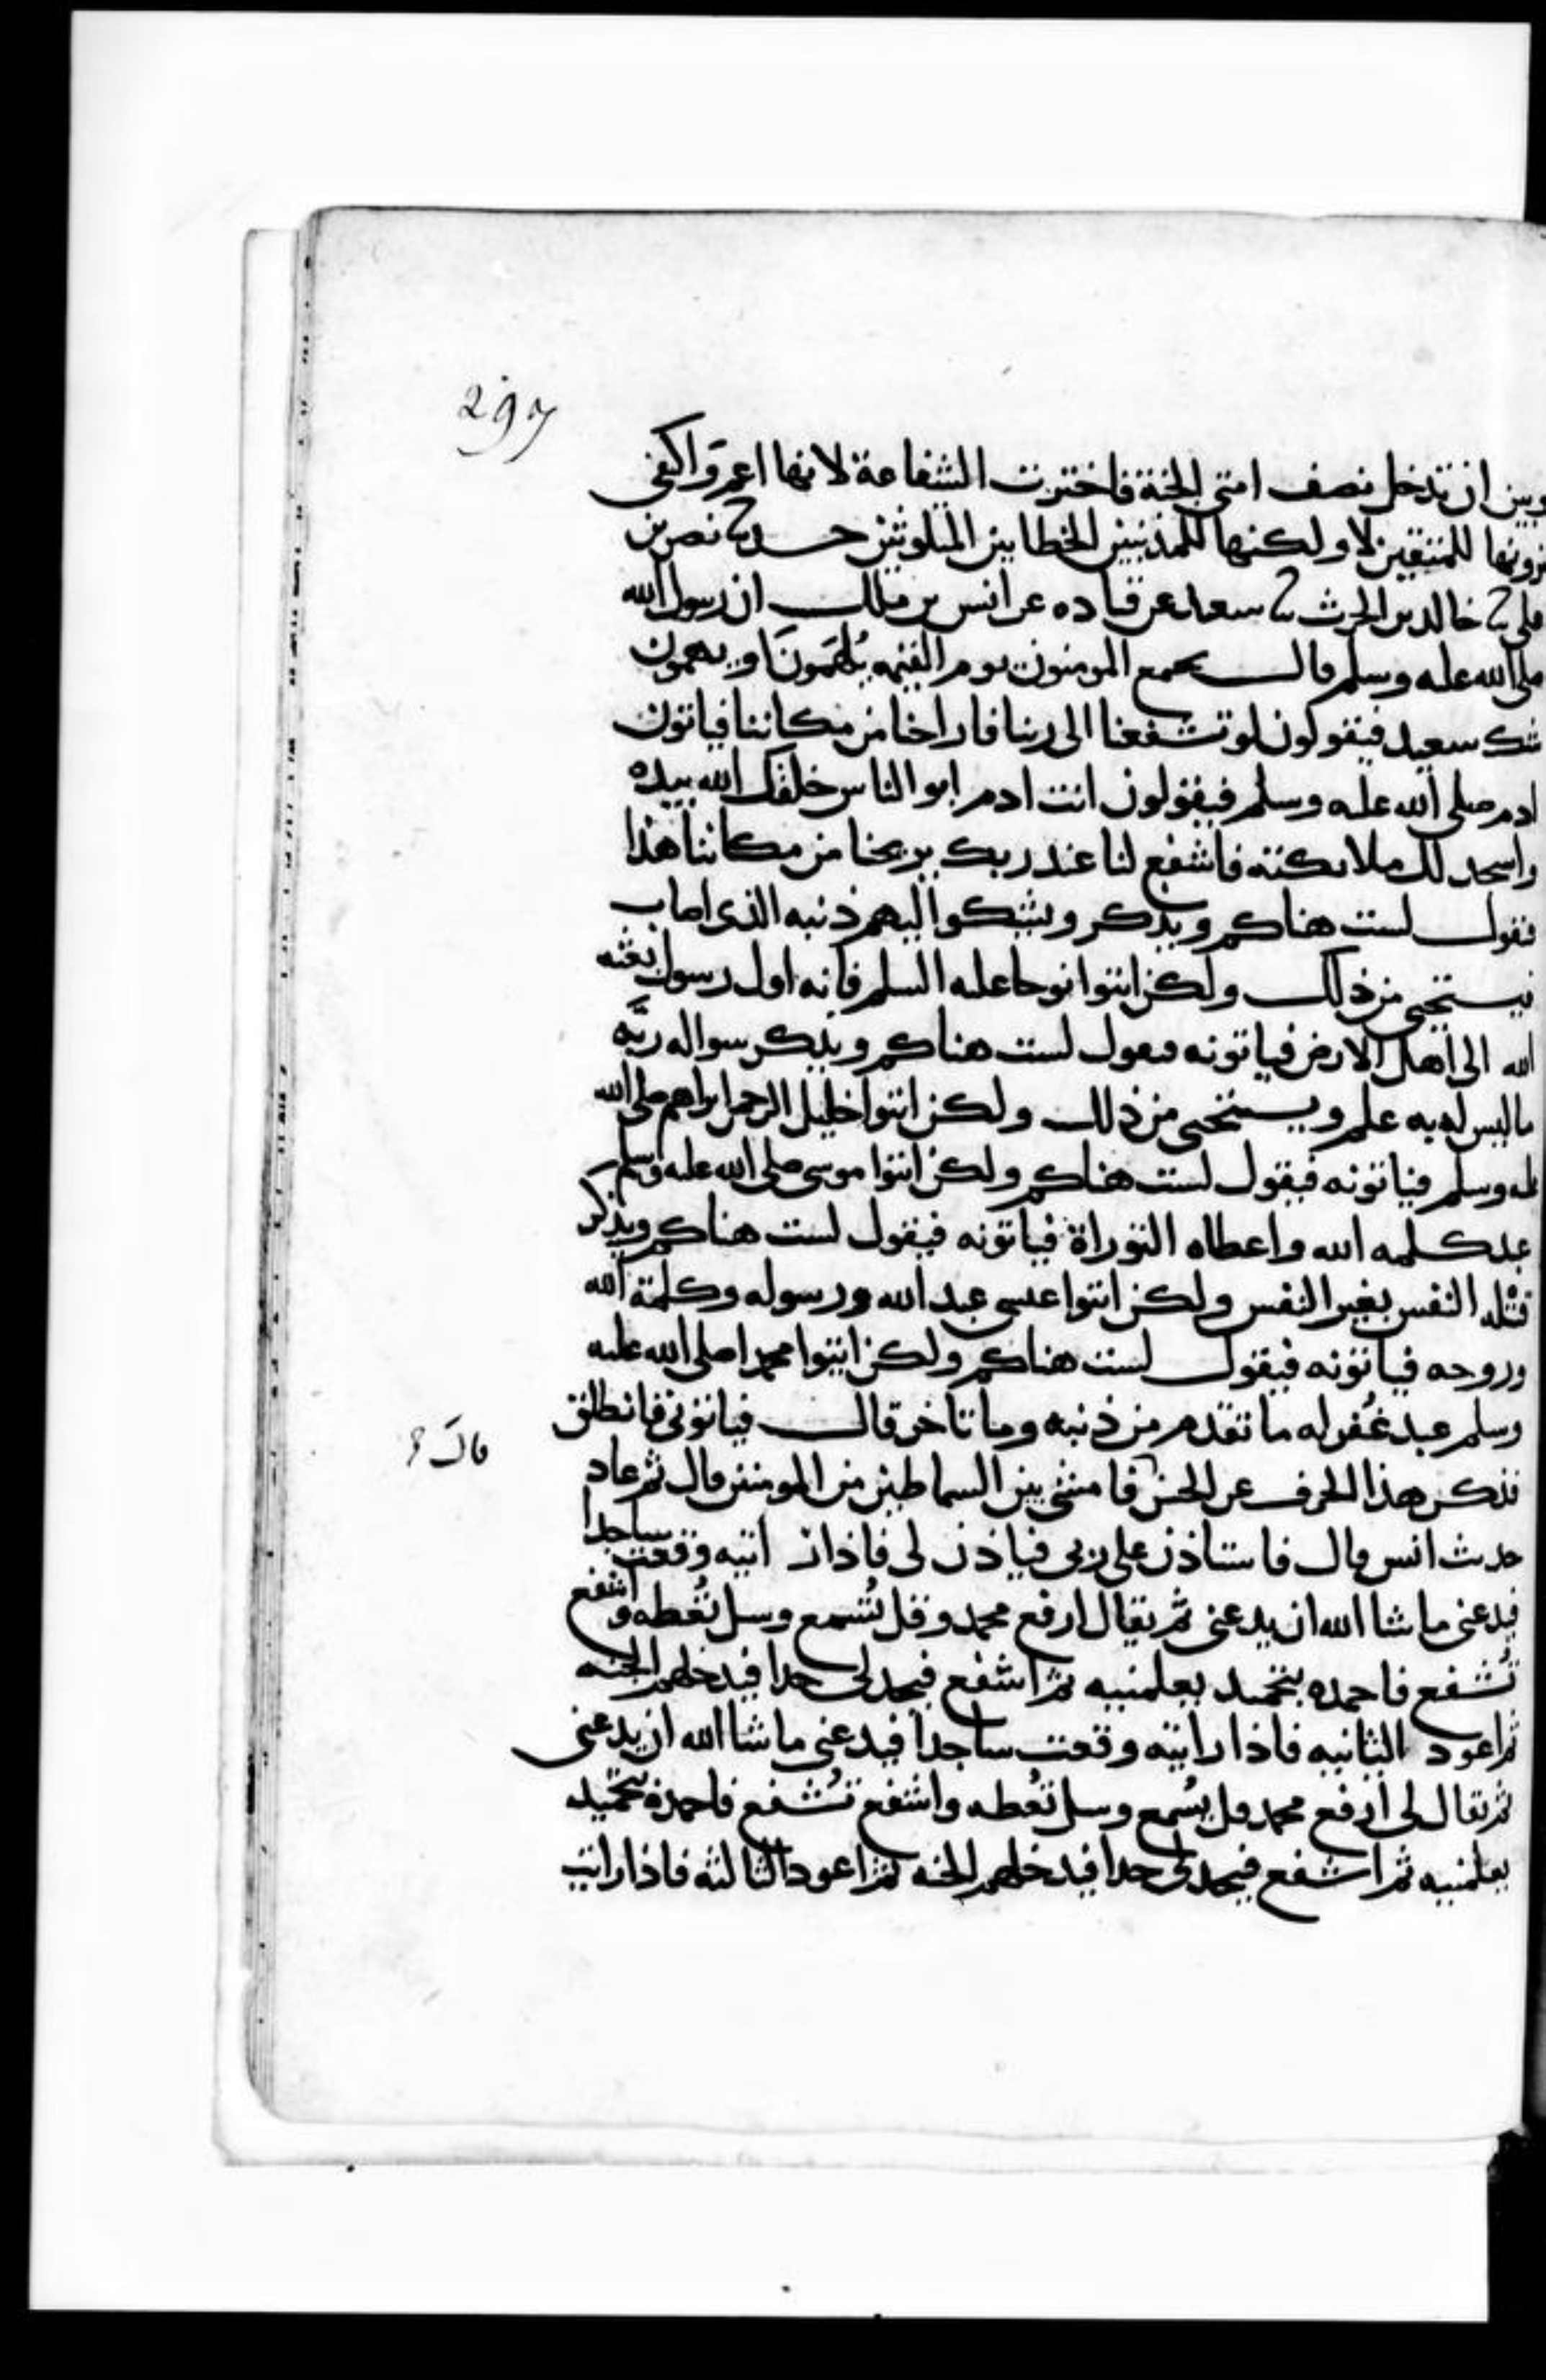 297
وبين ان تدخل نصف امتي الجنة فاخترت الشفاعة لانها اعم واكفى
ترونها للمتقين لا ولكنها للمذنبين الخطايين المتلوثين حدثنا نصر بن
علي ثنا خالد بن الحرث ثنا سعيد عن قتاده عن انس بن ملك ان رسول الله
صلى الله عليه وسلم قال يجمع المومنون يوم القيمه يُلهَمونَ او يهمون
شك سعيد فيقولون لو تشفعنا الى ربنا فاراحنا من مكاننا فياتون
ادم صلى الله عليه وسلم فيقولون انت ادم ابو الناس خلقك الله بيده
واسجد لك ملائكته فاشفع لنا عند ربك يريحنا من مكاننا هذا
فيقول لست هناكم ويذكر ويشكوا اليهم ذنبه الذي اصاب
فيستحيي من ذلك ولكن ايتوا نوحا عليه السلم فانه اول رسول بعثه
الله الى اهل الارض فياتونه فيقول لست هناكم ويذكر سواله ربَّه
ما ليس له به علم ويستحيي من ذلك ولكن ايتوا خليل الرحمن ابراهيم صلى الله
عليه وسلم فياتونه فيقول لست هناكم ولكن ايتوا موسى صلى الله عليه وسلم
عبد كلمه الله واعطاه التوراة فياتونه فيقول لست هناكم ويذكر
قتله النفس بغير النفس ولكن ايتوا عيسى عبد الله ورسوله وكلمة الله
وروحه فياتونه فيقول لست هناكم ولكن ايتوا محمدا صلى الله عليه
وسلم عبد غُفر له ما تقدم من ذنبه وما تاخر قال فياتوني فانطلق
قال
فذكر هذا الحرف عن الحسن فامشي بين السماطين من المومنين قال ثم عاد
حديث انس قال فاستاذن على ربي فياذن لي فاذا رايته وقعت ساجدا
فيدعني ما شا الله ان يدعني ثم يقال ارفع محمد وقل تُسمع وسل تُعطه واشفع
تُشفع فاحمده بتحميد يعلمنيه ثم اشفع فيحد لي حدا فيدخلهم الجنه
ثم اعود الثانيه فاذا رايته وقعت ساجدا فيدعني ما شا الله ان يدعني
ثم يقال لي ارفع محمد قل يُسمع وسل تُعطه واشفع تُشفع فاحمده بتحميد
يعلمنيه ثم اشفع فيحد لي حدا فيدخلهم الجنه ثم اعود الثالثه فاذا رايت